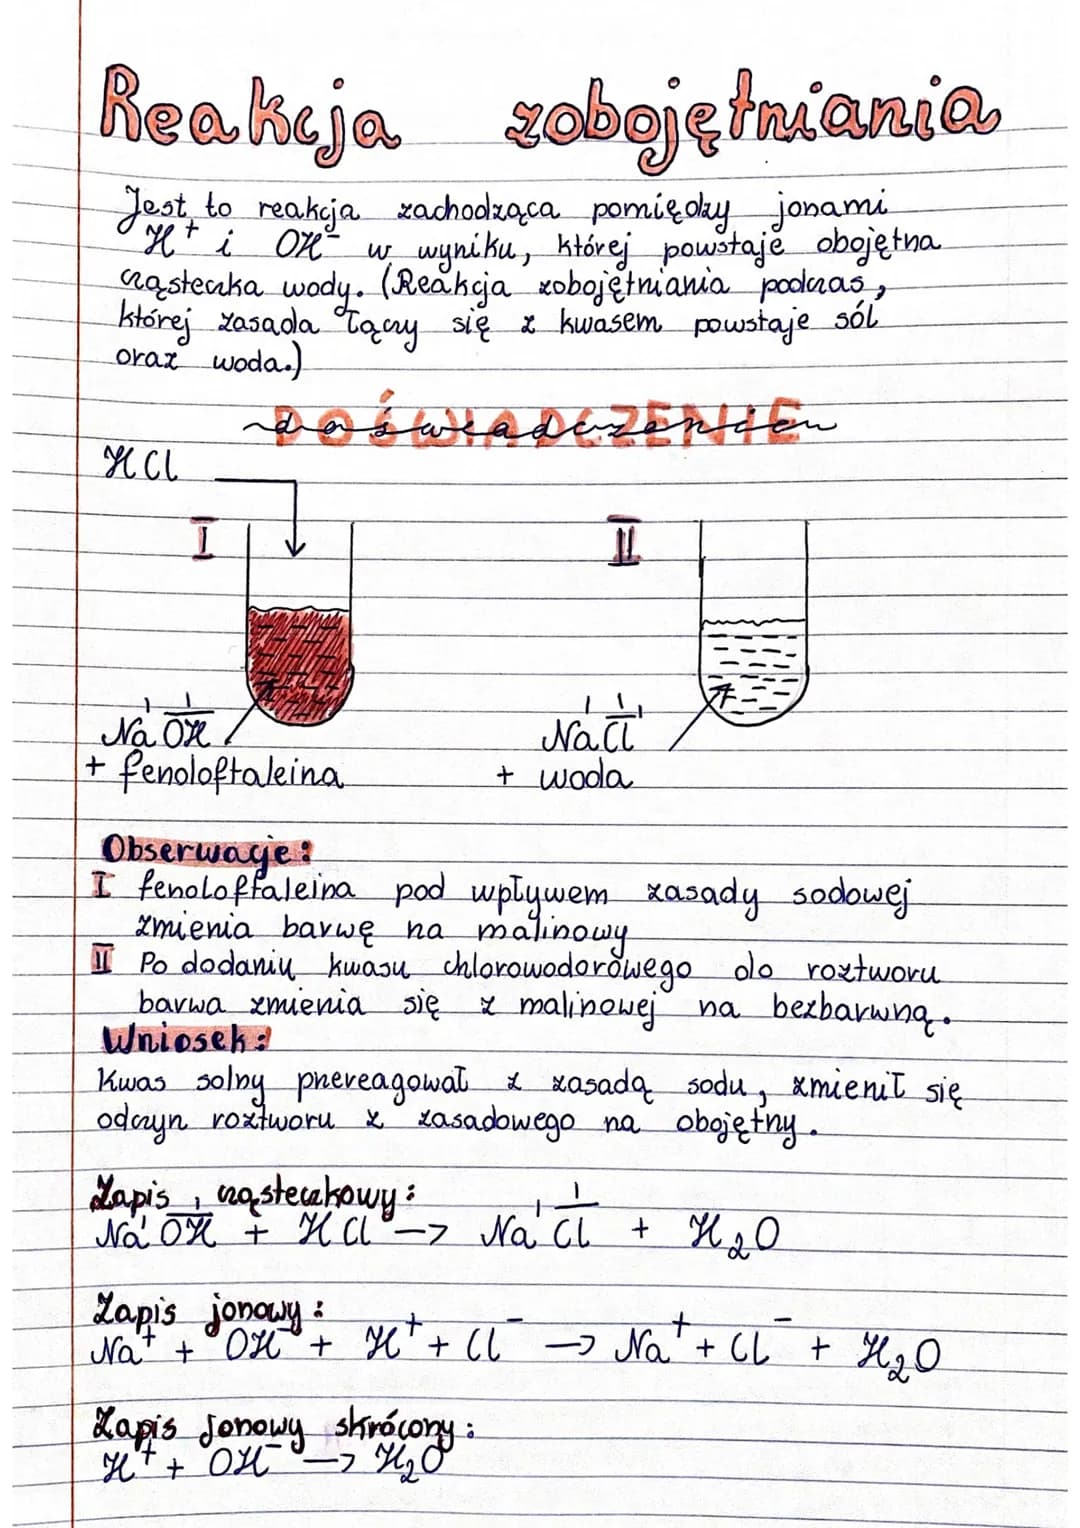 Reakcja zobojętniania
Jest to reakcja zachodząca pomiędzy jonami
H⁺ i OH⁻ w wyniku, której powstaje obojętna
cząsteczka wody. (Reakcja zobojętniania podczas,
której zasada łączy się z kwasem powstaje sól
oraz woda.)
DOŚWIADCZENIE
HCl
I II
I I I I
NaOH NaCl
+ fenoloftaleina + woda
Obserwacje:
I fenoloftaleina pod wpływem zasady sodowej
zmienia barwę na malinowy
II Po dodaniu kwasu chlorowodorowego do roztworu
barwa zmienia się z malinowej na bezbarwną.
Wniosek:
Kwas solny przereagował z zasadą sodu, zmienił się
odczyn roztworu z zasadowego na obojętny.
Zapis cząsteczkowy:
NaᴵOHᴵ + HCl -> NaᴵClᴵ + H₂O
Zapis jonowy:
Na⁺ + OH⁻ + H⁺ + Cl⁻ -> Na⁺ + Cl⁻ + H₂O
Zapis Jonowy skrócony:
H⁺ + OH⁻ -> H₂O